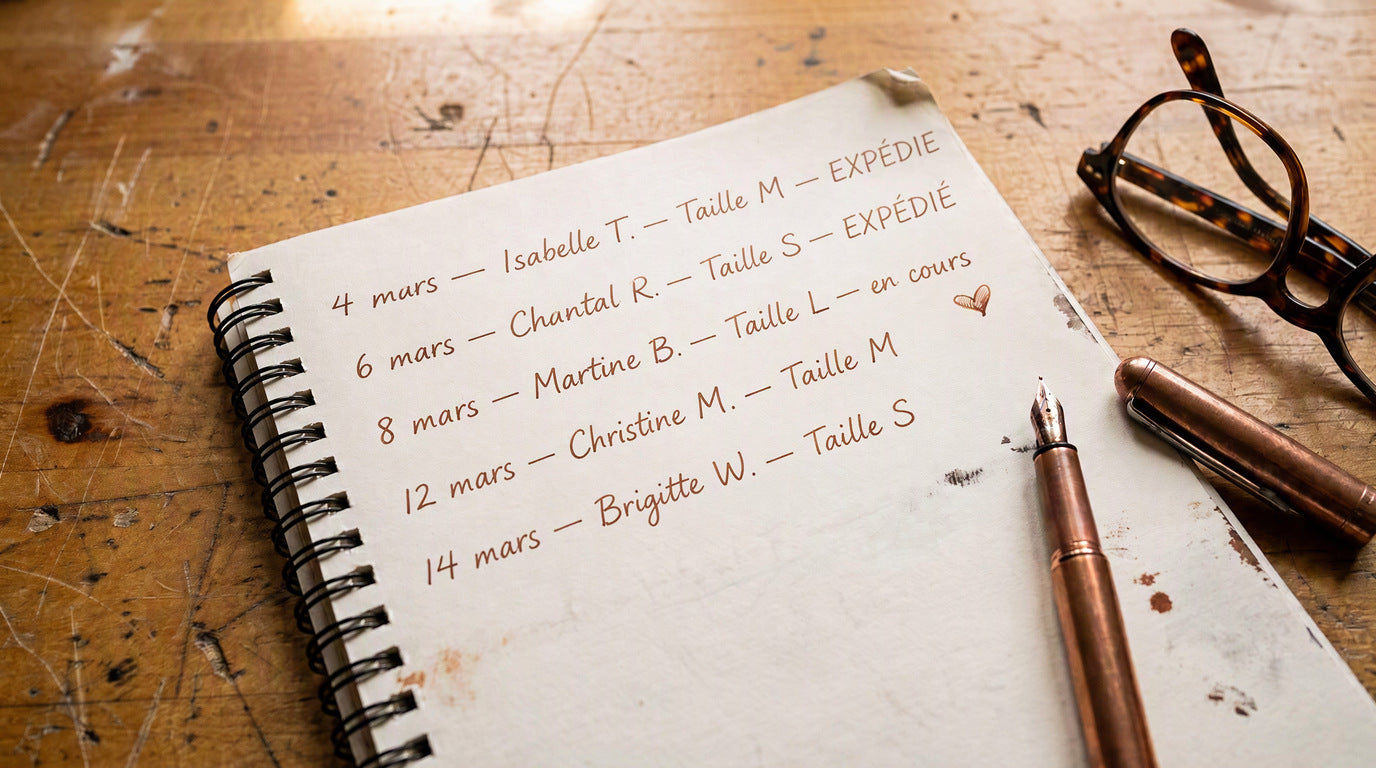 4 mars — Isabelle T. — Taille M — EXPÉDIE
6 mars — Chantal R. — Taille S — EXPÉDIÉ
8 mars — Martine B. — Taille L — en cours
12 mars — Christine M. — Taille M
14 mars — Brigitte W. — Taille S